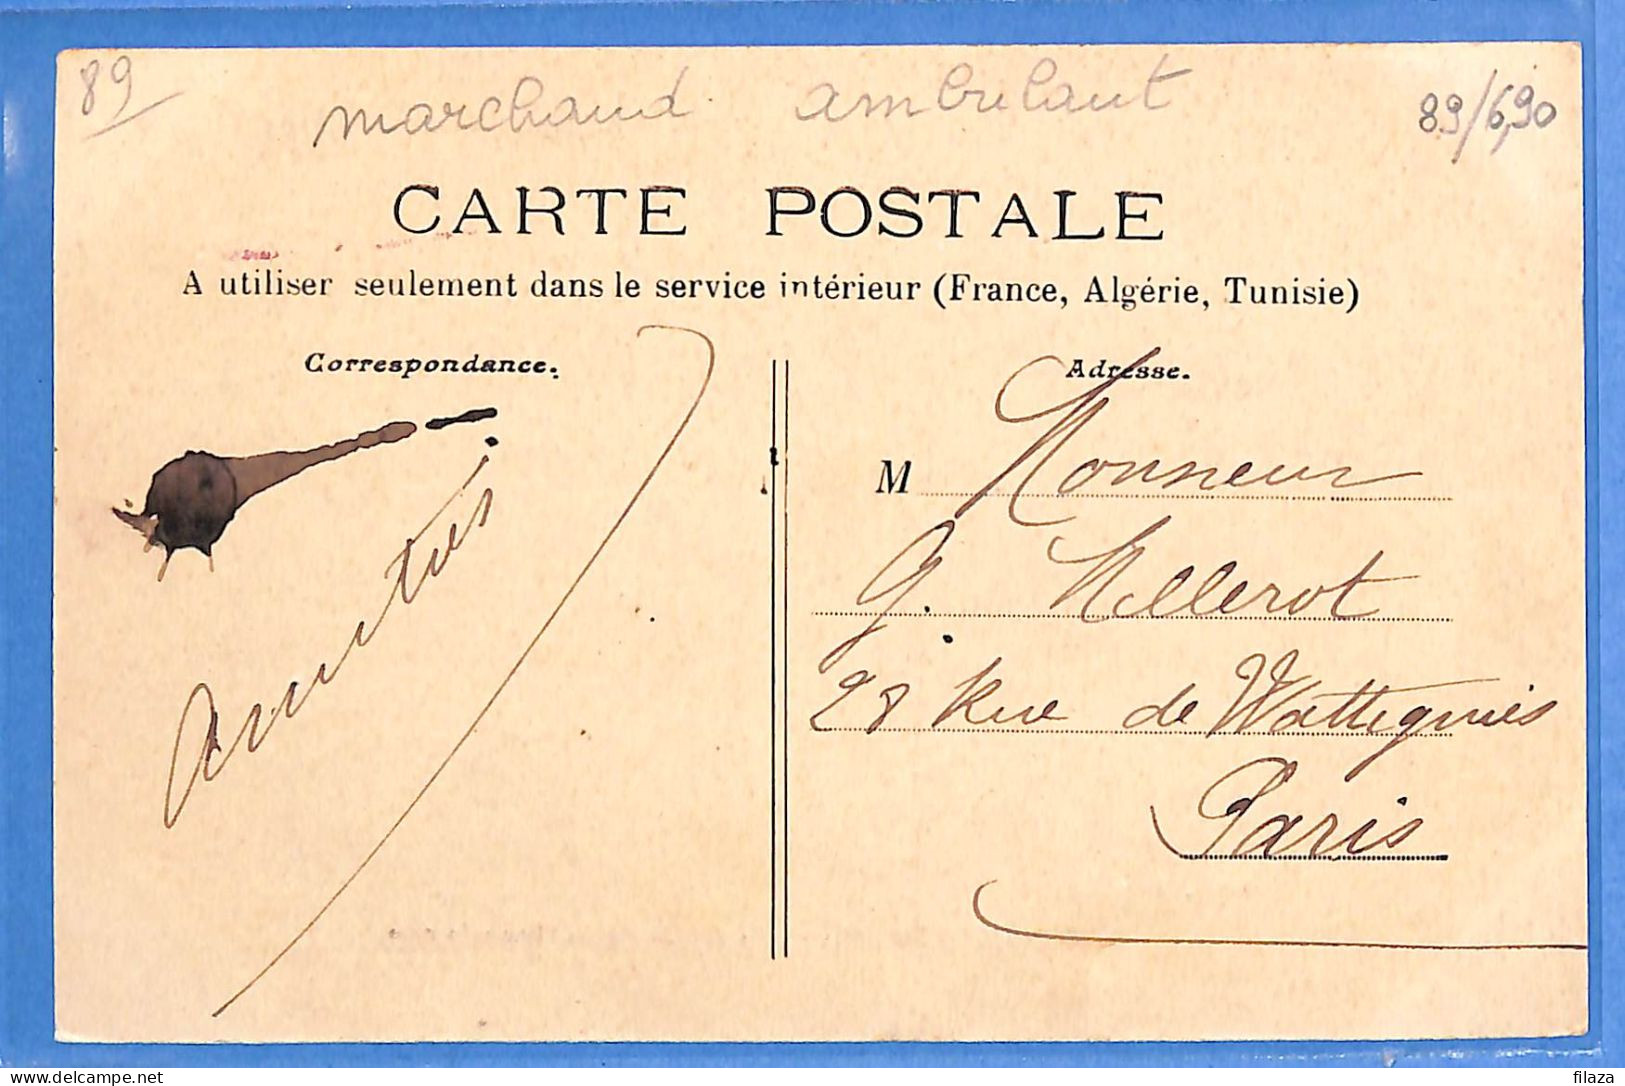 89
marchand ambulant
89/6,90
CARTE POSTALE
A utiliser seulement dans le service intérieur (France, Algérie, Tunisie)
Correspondance.
Adresse.
Amitiés
M Monsieur
G. Millerot
28 Rue de Wattignies
Paris
filaza